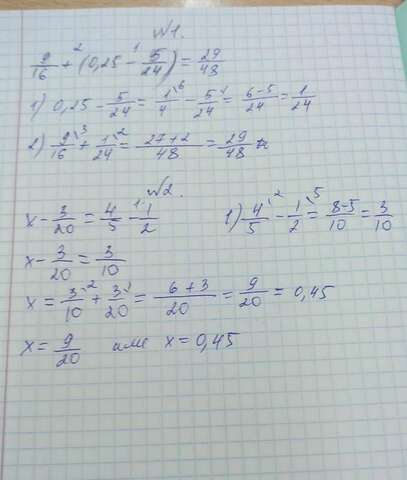 №1.
9/16 + (0,25 - 5/24) = 29/48
1) 0,25 - 5/24 = 1/4 - 5/24 = 6-5/24 = 1/24
2) 9/16 + 1/24 = 27+2/48 = 29/48
№2.
x - 3/20 = 4/5 - 1/2
1) 4/5 - 1/2 = 8-5/10 = 3/10
x - 3/20 = 3/10
x = 3/10 + 3/20 = 6+3/20 = 9/20 = 0,45
x = 9/20 или x = 0,45